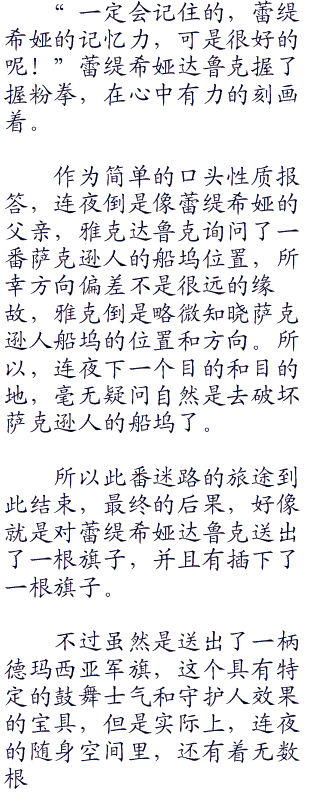 “ 一定会记住的，蕾缇
希娅的记忆力，可是很好的
呢！”蕾缇希娅达鲁克握了
握粉拳，在心中有力的刻画
着。
作为简单的口头性质报
答，连夜倒是像蕾缇希娅的
父亲，雅克达鲁克询问了一
番萨克逊人的船坞位置，所
幸方向偏差不是很远的缘
故，雅克倒是略微知晓萨克
逊人船坞的位置和方向。所
以，连夜下一个目的和目的
地，毫无疑问自然是去破坏
萨克逊人的船坞了。
所以此番迷路的旅途到
此结束，最终的后果，好像
就是对蕾缇希娅达鲁克送出
了一根旗子，并且有插下了
一根旗子。
不过虽然是送出了一柄
德玛西亚军旗，这个具有特
定的鼓舞士气和守护人效果
的宝具，但是实际上，连夜
的随身空间里，还有着无数
根